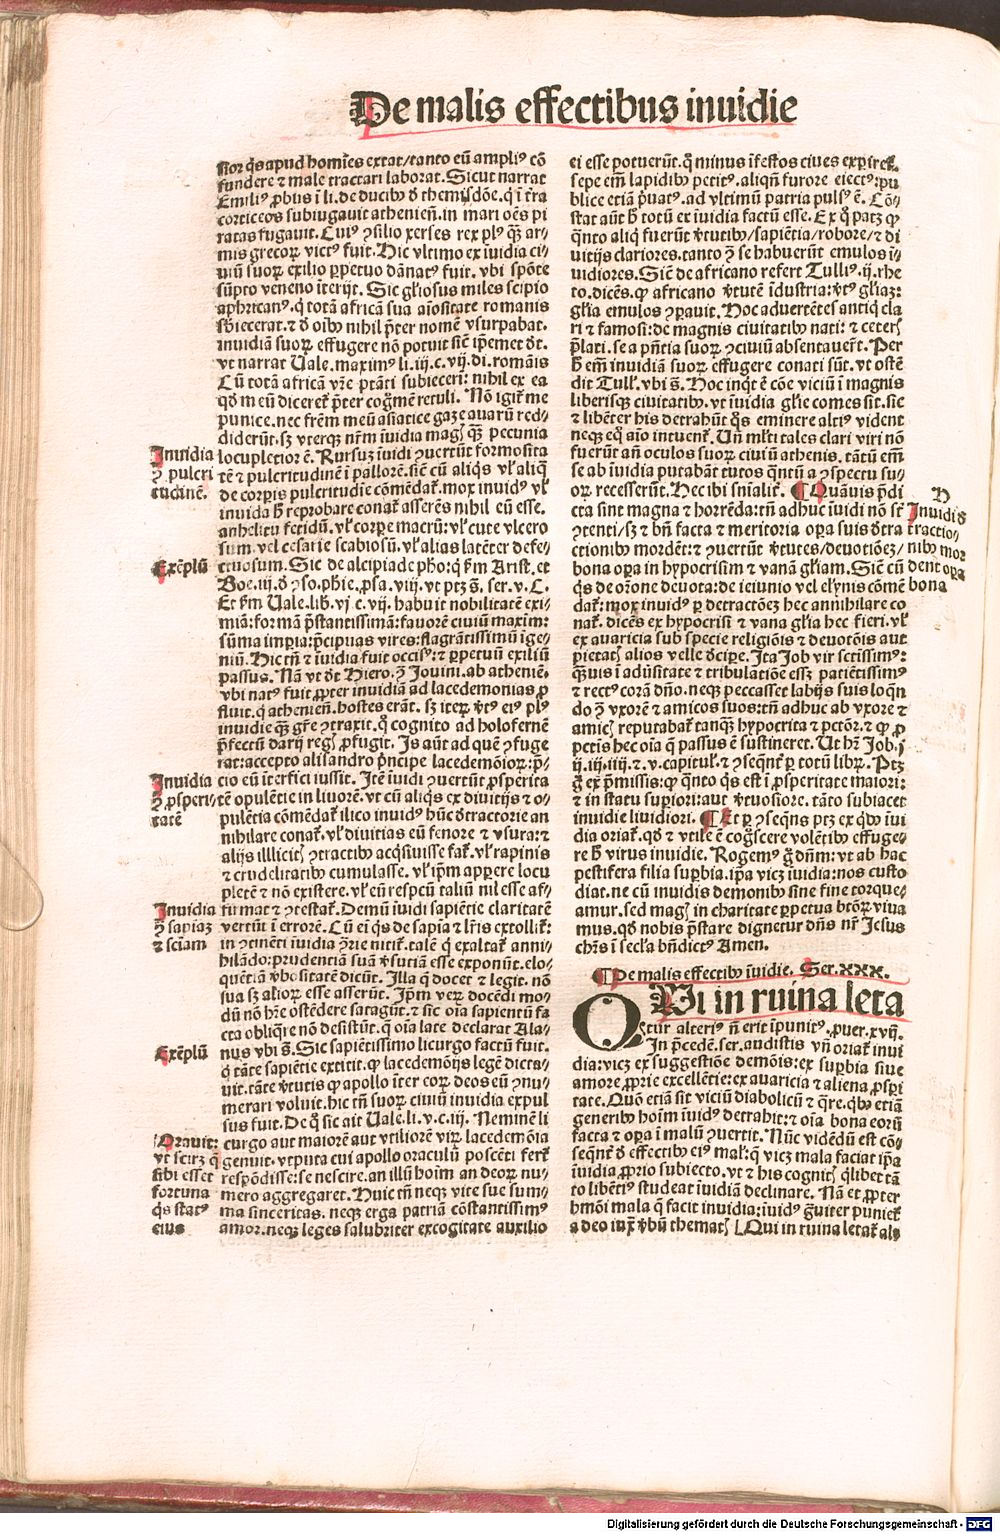 De malis effectibus inuidie
sior q̄s apud homīes extat/tanto eū ampliꝰ cō
fundere ⁊ male tractari laborat. Sicut narrat
Emiliꝰ ꝓbus ī li. de ducibꝰ
corticeos subiugauit atheniēn̄. in mari oēs pi
ratas fugauit. Cuiꝰ ꝯsilio xerses rex
mis grecoꝝ victꝰ fuit. Hic vltimo ex īuidia ci⸗
uiū suoꝝ exilio ꝑpetuo dānatꝰ fuit. vbi spōte
sūpto veneno īterijt. Sic gl̄iosus miles scipio
aphricanꝰ. q̇ totā africā sua aīositate romanis
nihil p̄ter nomē vsurpabat.
inuidiā suoꝝ effugere nō potuit
vt narrat Uale. maximꝰ li. iij. c. vij. di. romāis
Cū totā africā vr̄e ptāti subieceri: nihil ex ea
qd̄ meū diceret᷑ p̄ter cogͦmē retuli. Nō igit᷑ me
punice. nec fr̄em meū asiatice gaze auarū red⸗
diderūt. sꝫ vterqꝫ nr̄m īuidia pecunia
locupletior ē. Rursuꝫ īuidi ꝯuertūt formosita
tē ⁊ pulcritudinē ī pallorē.
de corꝑis pulcritudīe cōmēdat᷑. mox inuidꝰ
inuida reprobare conat᷑ asserēs nihil eū esse.
anhelitu fetidū. vl᷑ corꝑe macrū: vl᷑ cute vlcero
sum. vel cesarie scabiosū. vl᷑ alias latēter defe⸗
ctuosum. Sic de alcipiade
Boe. iij.
Et Uale. lib. vj c. vij. habuit nobilitatē exi⸗
miā: formā p̄stantissimā: fauorē ciuiū maxim:
sūma imꝑia: p̄cipuas vires: flagrātissimū īge⸗
niū. Hic tn̄ ⁊ īuidia fuit occisꝰ: ⁊ ꝑpetuū exiliū
passus. Nā vt Hiero. Jouini. ab atheniē.
vbi natꝰ fuit, ꝓpter inuidiā ad lacedemonias ꝓ
fluit. q̇ atheniēn̄. hostes erāt.
inuidie cognito ad holofernē
p̄fectū darij ꝓfugit. Is aūt ad quē ꝯfuge
rat: accepto alisandro p̄ncipe lacedemōioꝝ:
cio eū īterfici iussit. Itē īuidi ꝯuertūt ꝓsperita
tē opulētie in liuorē. vt cū aliq̄s ex diuitijs ⁊ o⸗
pulētia cōmēdat᷑. ilico inuidꝰ hūc detractorie an
nihilare conat᷑. vl᷑ diuitias eū fenore ⁊ vsura: ⁊
alijs illicitꝭ ꝯtractibꝰ acq̇siuisse fat᷑. vl᷑ rapinis
⁊ crudelitatibꝰ cumulasse. vl᷑ ip̄m apꝑere locu
pletē ⁊ nō existere. vl᷑ eū respectu taliū nil esse af⸗
firmat ⁊ ꝯtestat᷑. Demū īuidi sapiētie claritatē
vertūt ī errorē. Cū ei q̄s de sapīa ⁊ lr̄is extollit᷑:
in ꝯtinēti īuidia talē q̇ exaltat᷑ anni⸗
hilādo: prudentiā suā esse exponūt. elo⸗
quētiā dicūt. Illa q̄ docet ⁊ legit. nō
sua sꝫ alioꝝ esse asserūt. Ip̄m veꝝ docēdi mo⸗
dū nō h̄re ostēdere satagūt. ⁊ sic oīa sapientū fa
cta obliq̄re nō desistūt. q̄ oīa late declarat Ala⸗
nus vbi s̄. Sic sapiētissimo licurgo factū fuit.
q̇ tāte sapiētie extitit. qꝫ lacedemōijs legē dicta⸗
uit. tāte v̄tutis qꝫ apollo īter coꝝ deos eū ꝯnu⸗
merari voluit. hic tn̄ suoꝝ ciuiū inuidia expul
sus fuit. De sic ait Uale. li. v. c. iij. Neminē li
curgo aut maiorē aut vtiliorē viꝝ lacedemōia
genuit. vtputa cui apollo oraculū poscēti fert᷑
respōdisse: se nescire. an illū hoīm an deoꝝ nu⸗
mero aggregaret. Huic tn̄ neqꝫ vite sue sum⸗
ma sinceritas. neqꝫ erga patriā cōstantissimꝰ
amor. neqꝫ leges salubriter excogitate auxilio
Inuidia
ꝯ̄ pulcri
tudinē.
Exēplū
Inuidia
ꝯ̄ ꝓsperi⸗
tatē
Inuidia
ꝯ̄ sapiaꝫ
⁊ sciam
Exēplū
Orauit:
vt scirꝫ q̇
sibi esset
fortuna
q̄s statꝰ
eius
ei esse potuerūt. q̇ minus īfestos ciues expiret᷑.
sepe em̄ lapidibꝰ petitꝰ. aliqn̄ furore eiectꝰ: pu
blice etiā p̄uatꝰ. ad vltimū patria pulsꝰ ē. Cō⸗
stat aūt totū ex īuidia factū esse. Ex patꝫ qꝫ
q̄nto aliq̇ fuerūt v̄tutibꝰ/sapiētia/robore/⁊ di
uitijs clariores. tanto se habuerūt emulos ī⸗
uidiores. de africano refert Tulliꝰ. ij. rhe
to. dicēs. qꝫ africano v̄tutē īdustria: v̄tꝰ gl̄iaꝫ:
gl̄ia emulos ꝯparauit. Hoc aduertētes antiq̇ cla
ri ⁊ famosi: de magnis ciuitatibꝰ nati: ⁊ ceteri
p̄lati. se a pn̄tia suoꝝ ꝯciuiū absentauer̄t. Per
em̄ inuidiā suoꝝ effugere conati sūt. vt ostē
dit Tull. vbi s̄. Hoc inq̇t ē cōe viciū ī magnis
liberisqꝫ ciuitatibꝰ. vt īuidia gl̄ie comes sit.
⁊ libēter his detrahūt q̄s eminere altiꝰ vident
neqꝫ eq̇ aīo intuent᷑. Un̄ ml̄ti tales clari viri nō
fuerūt an̄ oculos suoꝝ ciuiū athenis. tātū em̄
se ab īuidia putabāt tutos q̄ntū a ꝯspectu su⸗
oꝝ recesserūt. Hec ibi ¶ Quāuis p̄di
cta sint magna ⁊ horrēda: tn̄ adhuc īuidi nō sr̄
ꝯtenti/sꝫ ⁊ bn̄ facta ⁊ meritoria oꝑa suis detra
ctionibꝰ mordēt: ⁊ ꝯuertūt v̄tutes/deuotiōeꝫ/
bona oꝑa in hypocrisim ⁊ vanā gl̄iam. Siē cū
q̄s de or̄one deuota: de ieiunio vel elynis cōmē
dat᷑: mox inuidꝰ ꝑ detractōeꝫ hec annihilare co
nat᷑. dicēs ex hypocrisi ⁊ vana gl̄ia hec fieri. vl᷑
ex auaricia sub specie religiōis ⁊ deuotōis aut
pietatꝭ alios velle decipe. Ita Job vir sctissimꝰ:
q̄uis ī aduersitate ⁊ tribulatiōe essꝫ patiētissimꝰ
⁊ rectꝰ corā dn̄o. neqꝫ peccasset labijs suis loqn̄
do vxorē ⁊ amicos suos: tn̄ adhuc ab vxore ⁊
amicꝭ reputabat᷑ tanqꝫ hypocrita ⁊ pctōr. ⁊ qꝫ ꝓ
pctis hec oīa q̄ passus ē sustineret. Ut hꝫ Job. j
ij. iij. iiij. ⁊ v. capitul. ⁊ ꝯseqn̄t ꝑ totū libꝝ. Ptꝫ
ex p̄missis: qꝫ q̄nto q̄s est ī ꝓsperitate maiori:
⁊ in statu suꝑiori: aut v̄tuosiore. tāto subiacet
inuidie liuidiori. ¶ Et ꝑ ꝯseqn̄s ptꝫ ex q̇bꝰ īui
dia oriat᷑. qd̄ ⁊ vtile ē cogͦscere volētibꝰ effuge⸗
re virus inuidie. Rogemꝰ dn̄m: vt ab hac
pestifera filia suꝑbia. ip̄a vicꝫ īuidia: nos custo
diat. ne cū inuidis demonibꝰ sine fine torque⸗
amur. sed magꝭ in charitate ꝑpetua btōꝝ viua
mus. qd̄ nobis p̄stare dignetur dn̄s nr̄ Jesus
chrs ī secl̄a bn̄dictꝰ Amen.
¶ De malis effectibꝰ īuidie. Ser. XXX.
QUi in ruina leta
tur alteriꝰ n̄ erit īpunitꝰ. ꝓuer. xvij.
In p̄cedē. ser. audistis vn̄ oriat᷑ inui
dia: vicꝫ ex suggestiōe demōis: ex suꝑbia siue
amore ꝓprie excellētie: ex auaricia ⁊ aliena ꝓspi
tate. Quō etiā sit viciū diabolicū ⁊ q̄re. q̇bꝰ etiā
generibꝰ hoīm īuidꝰ detrahit: ⁊ oīa bona eorū
facta ⁊ oꝑa ī malū ꝯuertit. Nūc vidēdū est cō⸗
seqn̄t effectibꝰ eiꝰ mal: q̄ vicꝫ mala faciat ip̄a
īuidia ꝓprio subiecto. vt ⁊ his cognitꝭ q̇libet tā
to libētiꝰ studeat īuidiā declinare. Nā et ꝓpter
hmōi mala q̄ facit inuidia: īuidꝰ grauiter puniet᷑
a deo iuxͣ v̄bū thematꝭ Qui in ruina letat᷑ alͣ
H
Inuidi
tractio⸗
nibꝰ mor
dent oꝑa
bona
Digitalisierung gefördert durch die Deutsche Forschungsgemeinschaft - DFG